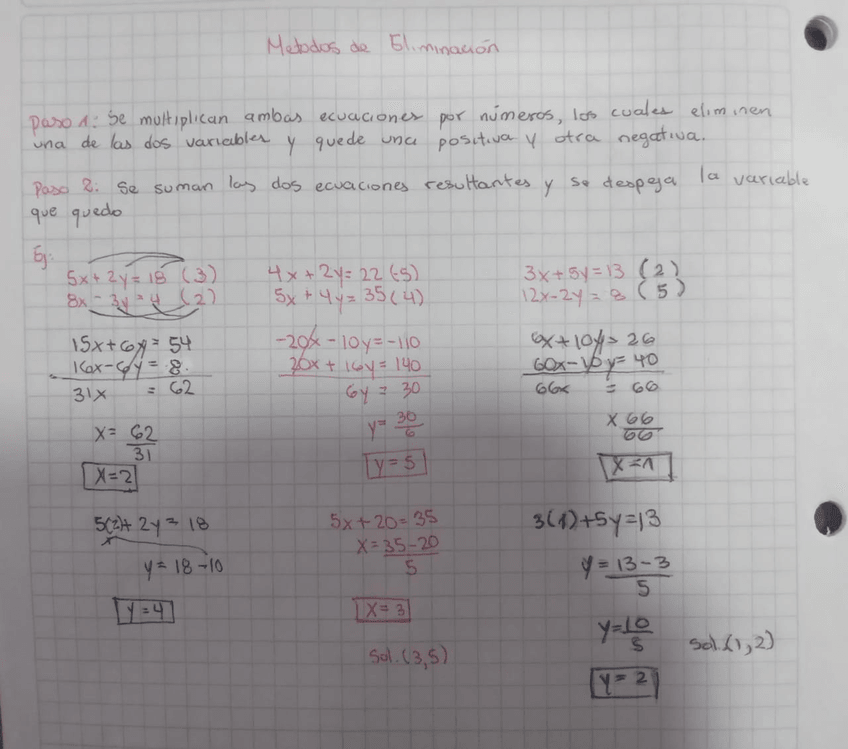 Metodos de Eliminación
Paso 1: Se multiplican ambas ecuaciones por números, los cuales eliminen
una de las dos variables y quede una positiva y otra negativa.
Paso 2: Se suman las dos ecuaciones resultantes y se despeja la variable
que quedo
Ej:
5x + 2y = 18 (3)
8x - 3y = 4 (2)
15x + 6y = 54
16x - 6y = 8.
31x = 62
x = 62/31
x = 2
5(2) + 2y = 18
y = 18 - 10
y = 4
4x + 2y = 22 (-5)
5x + 4y = 35 (4)
-20x - 10y = -110
20x + 16y = 140
6y = 30
y = 30/6
y = 5
5x + 20 = 35
x = 35 - 20/5
x = 3
Sol. (3,5)
3x + 5y = 13 (2)
12x - 2y = 8 (5)
6x + 10y = 26
60x - 10y = 40
66x = 66
x 66/66
x = 1
3(1) + 5y = 13
y = 13 - 3/5
y = 10/5
y = 2
Sol. (1,2)